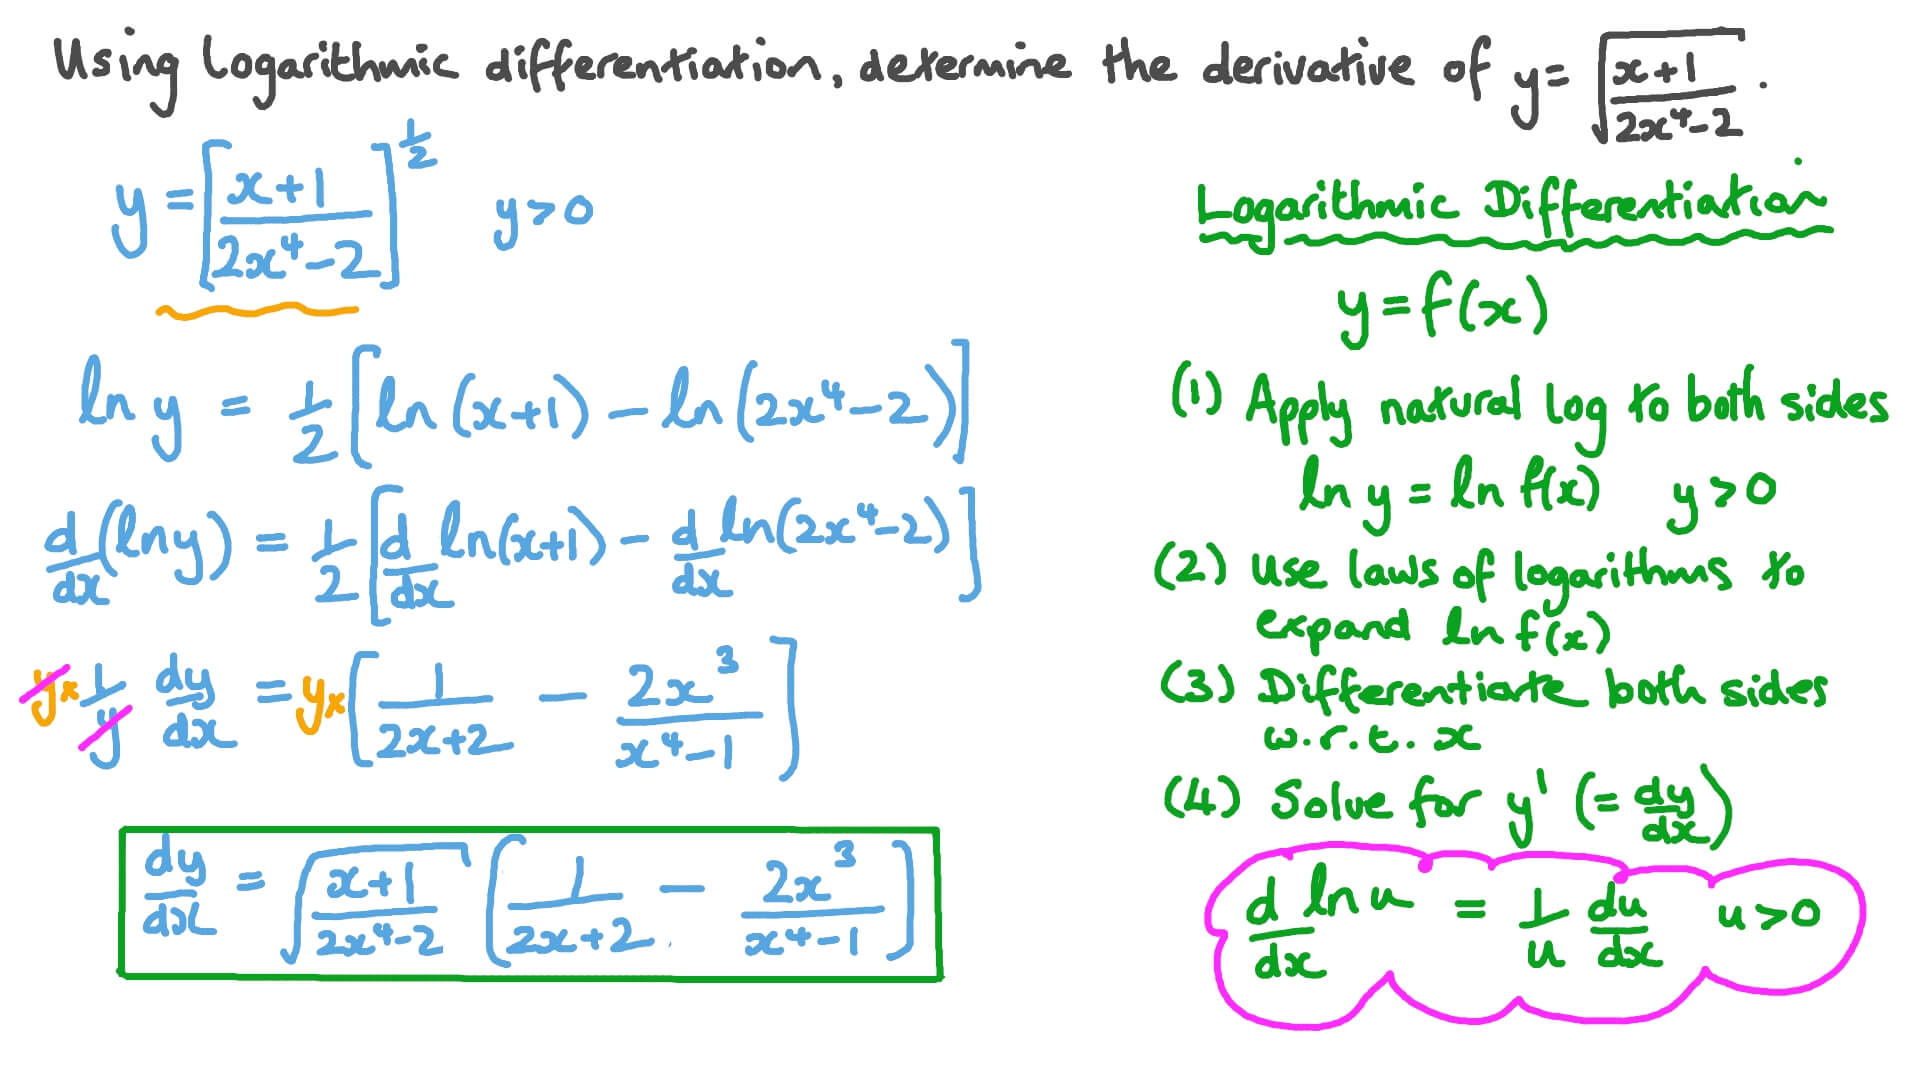 Using Logarithmic differentiation, determine the derivative of y = √((x+1)/(2x⁴-2)).
y = [(x+1)/(2x⁴-2)]^(1/2)   y>0
ln y = 1/2 [ln (x+1) - ln (2x⁴-2)]
d/dx (ln y) = 1/2 [d/dx ln(x+1) - d/dx ln(2x⁴-2)]
y × 1/y dy/dx = y × [1/(2x+2) - 2x³/(x⁴-1)]
dy/dx = √((x+1)/(2x⁴-2)) [1/(2x+2) - 2x³/(x⁴-1)]
Logarithmic Differentiation
y = f(x)
(1) Apply natural log to both sides
ln y = ln f(x)   y>0
(2) Use laws of logarithms to
expand ln f(x)
(3) Differentiate both sides
w.r.t. x
(4) Solve for y' (= dy/dx)
d/dx ln u = 1/u du/dx   u>0